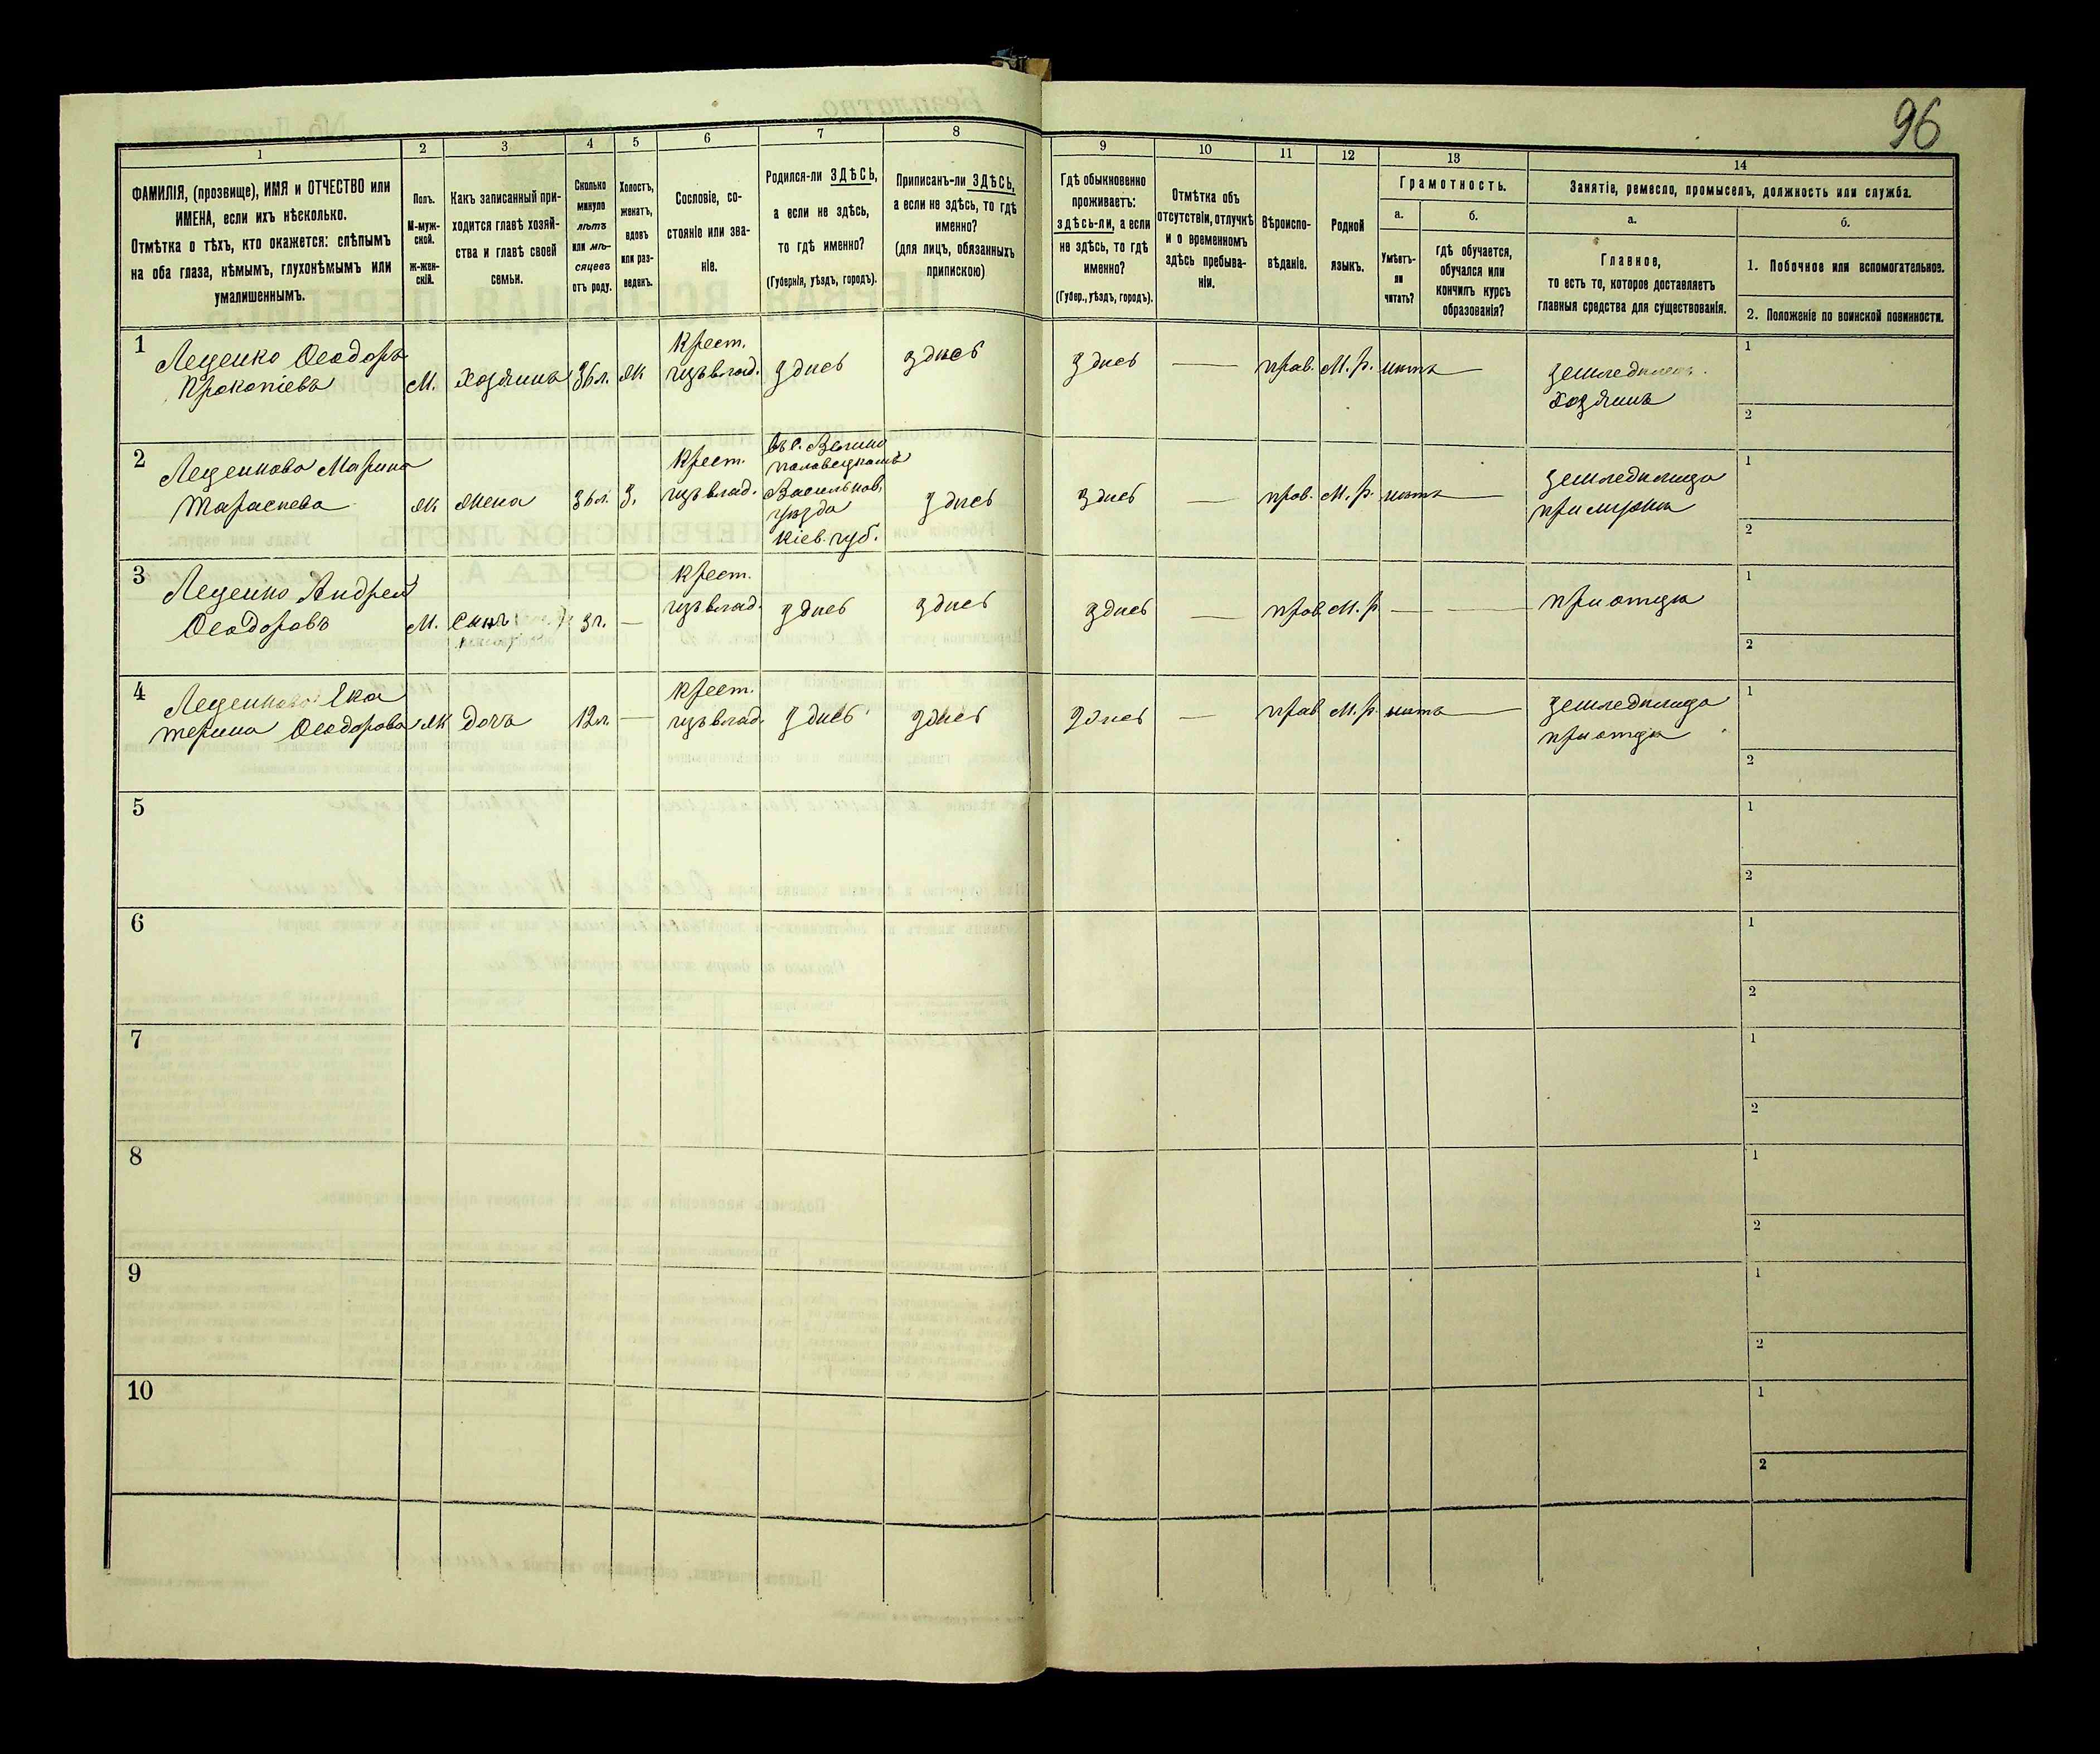 96
1
2
3
4
5
6
7
8
9
10
11
12
13
14
ФАМИЛІЯ, (прозвище), ИМЯ и ОТЧЕСТВО или
ИМЕНА, если ихъ нѣсколько.
Отмѣтка о тѣхъ, кто окажется: слѣпымъ
на оба глаза, нѣмымъ, глухонѣмымъ или
умалишеннымъ.
Полъ.
М-муж-
ской.
Ж-жен-
скій.
Какъ записанный при-
ходится главѣ хозяй-
ства и главѣ своей
семьи.
Сколько
минуло
лѣтъ
или мѣ-
сяцевъ
отъ роду.
Холостъ,
женатъ,
вдовъ
или раз-
веденъ.
Сословіе, со-
стояніе или зва-
ніе.
Родился-ли ЗДѢСЬ,
а если не здѣсь,
то гдѣ именно?
(Губернія, уѣздъ, городъ).
Приписанъ-ли ЗДѢСЬ,
а если не здѣсь, то гдѣ
именно?
(для лицъ, обязанныхъ
припискою)
Гдѣ обыкновенно
проживаетъ:
здѣсь-ли, а если
не здѣсь, то гдѣ
именно?
(Губер., уѣздъ, городъ).
Отмѣтка объ
отсутствіи, отлучкѣ
и о временномъ
здѣсь пребыва-
ніи.
Вѣроиспо-
вѣданіе.
Родной
языкъ.
Грамотность.
а.
Умѣетъ-
ли
читать?
б.
Гдѣ обучается,
обучался или
кончилъ курсъ
образованія?
Занятіе, ремесло, промыселъ, должность или служба.
а.
Главное,
то есть то, которое доставляетъ
главныя средства для существованія.
б.
1. Побочное или вспомогательное.
2. Положеніе по воинской повинности.
1
Лещенко Ѳеодоръ
Прокопіевъ
М.
Хозяинъ
36 л.
Ж
Крест.
изъ влад.
здѣсь
здѣсь
здѣсь
—
прав.
М. р.
нѣтъ
—
земледѣлецъ.
Хозяинъ
1
2
2
Лещенкова Марина
Тарасиева
Ж
Жена
36 л.
З.
Крест.
изъ влад.
Въ с. Велико
половецкомъ
Васильков.
уѣзда
Кіев. губ.
здѣсь
здѣсь
—
прав.
М. р.
нѣтъ
—
земледѣлица
при мужѣ
1
2
3
Лещенко Андрей
Ѳеодоровъ
М.
Сынъ
3 г.
—
Крест.
изъ влад.
здѣсь
здѣсь
здѣсь
—
прав.
М. р.
—
—
при отцѣ
1
2
4
Лещенкова Ека
терина Ѳеодорова
Ж
дочь
12 л.
—
Крест.
изъ влад.
здѣсь
здѣсь
здѣсь
—
прав.
М. р.
нѣтъ
—
земледѣлица
при отцѣ
1
2
5
1
2
6
1
2
7
1
2
8
1
2
9
1
2
10
1
2